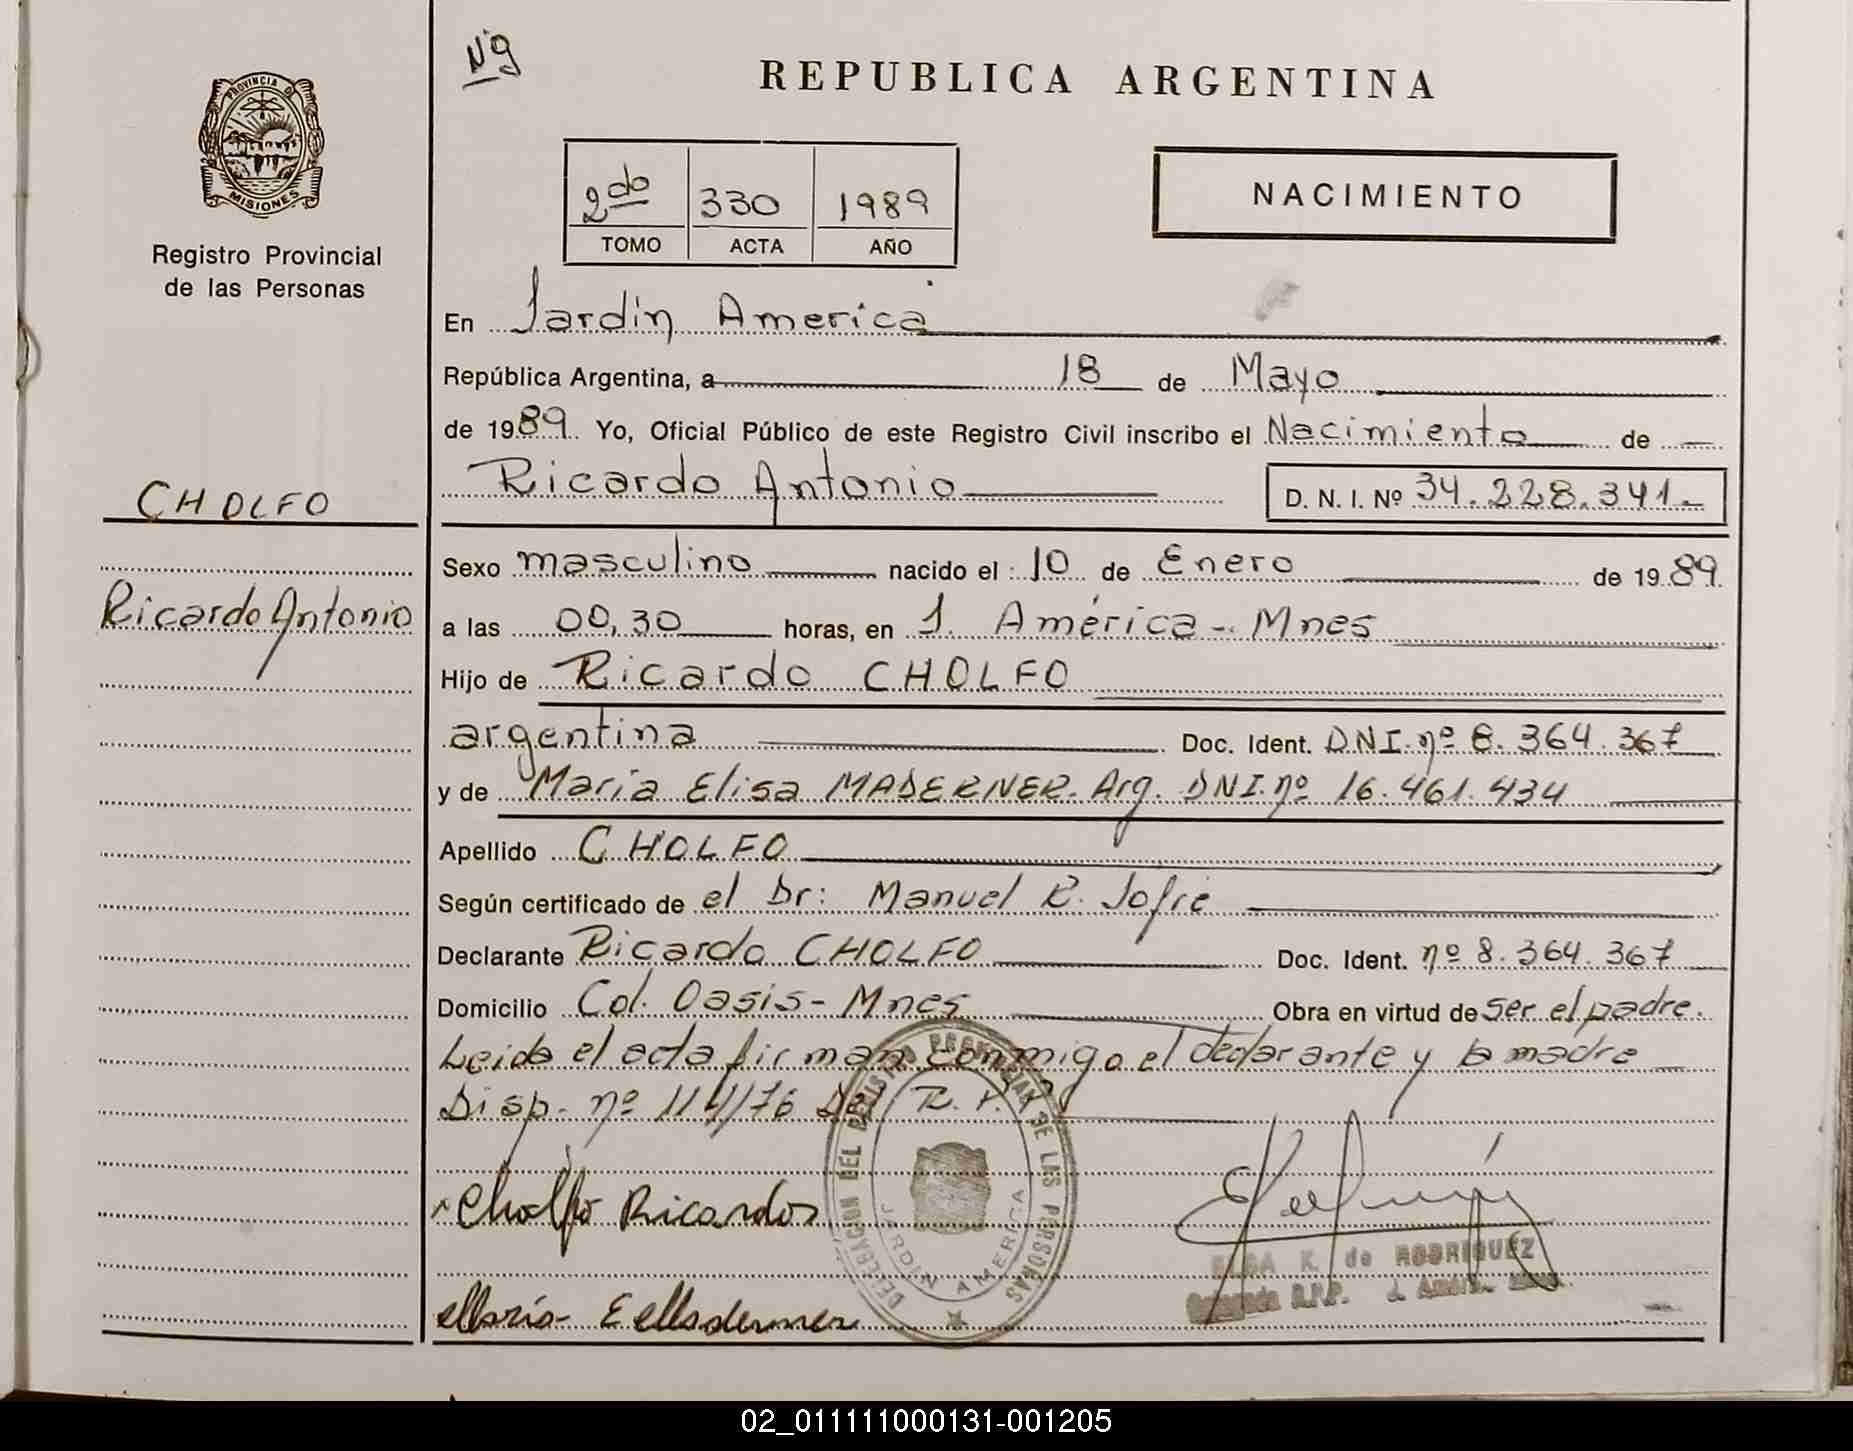 Nº9
REPUBLICA ARGENTINA
PROVINCIA DE
MISIONES
Registro Provincial
de las Personas
2do 330 1989
TOMO ACTA AÑO
NACIMIENTO
En Jardin America
República Argentina, a 18 de Mayo
de 1989. Yo, Oficial Público de este Registro Civil inscribo el Nacimiento de
Ricardo Antonio D. N. I. Nº 34.228.341.-
CHOLFO
Ricardo Antonio
Sexo masculino nacido el 10 de Enero de 1989.
a las 00,30 horas, en J. América - Mnes
Hijo de Ricardo CHOLFO
argentina Doc. Ident. DNI. nº 8.364.367
y de María Elisa MADERNER. Arg. DNI. nº 16.461.434
Apellido CHOLFO
Según certificado de el Dr: Manuel R. Jofré
Declarante Ricardo CHOLFO Doc. Ident. nº 8.364.367
Domicilio Col. Oasis - Mnes Obra en virtud de ser el padre.
Leida el acta firman conmigo el declarante y la madre
Disp. nº 114/76 Del R. P. P.
Cholfo Ricardo
DELEGACION DEL REGISTRO PROVINCIAL DE LAS PERSONAS
JARDIN AMERICA
K. de RODRIGUEZ
R.P.P. J. Amér.
María E Maderner
02_011111000131-001205